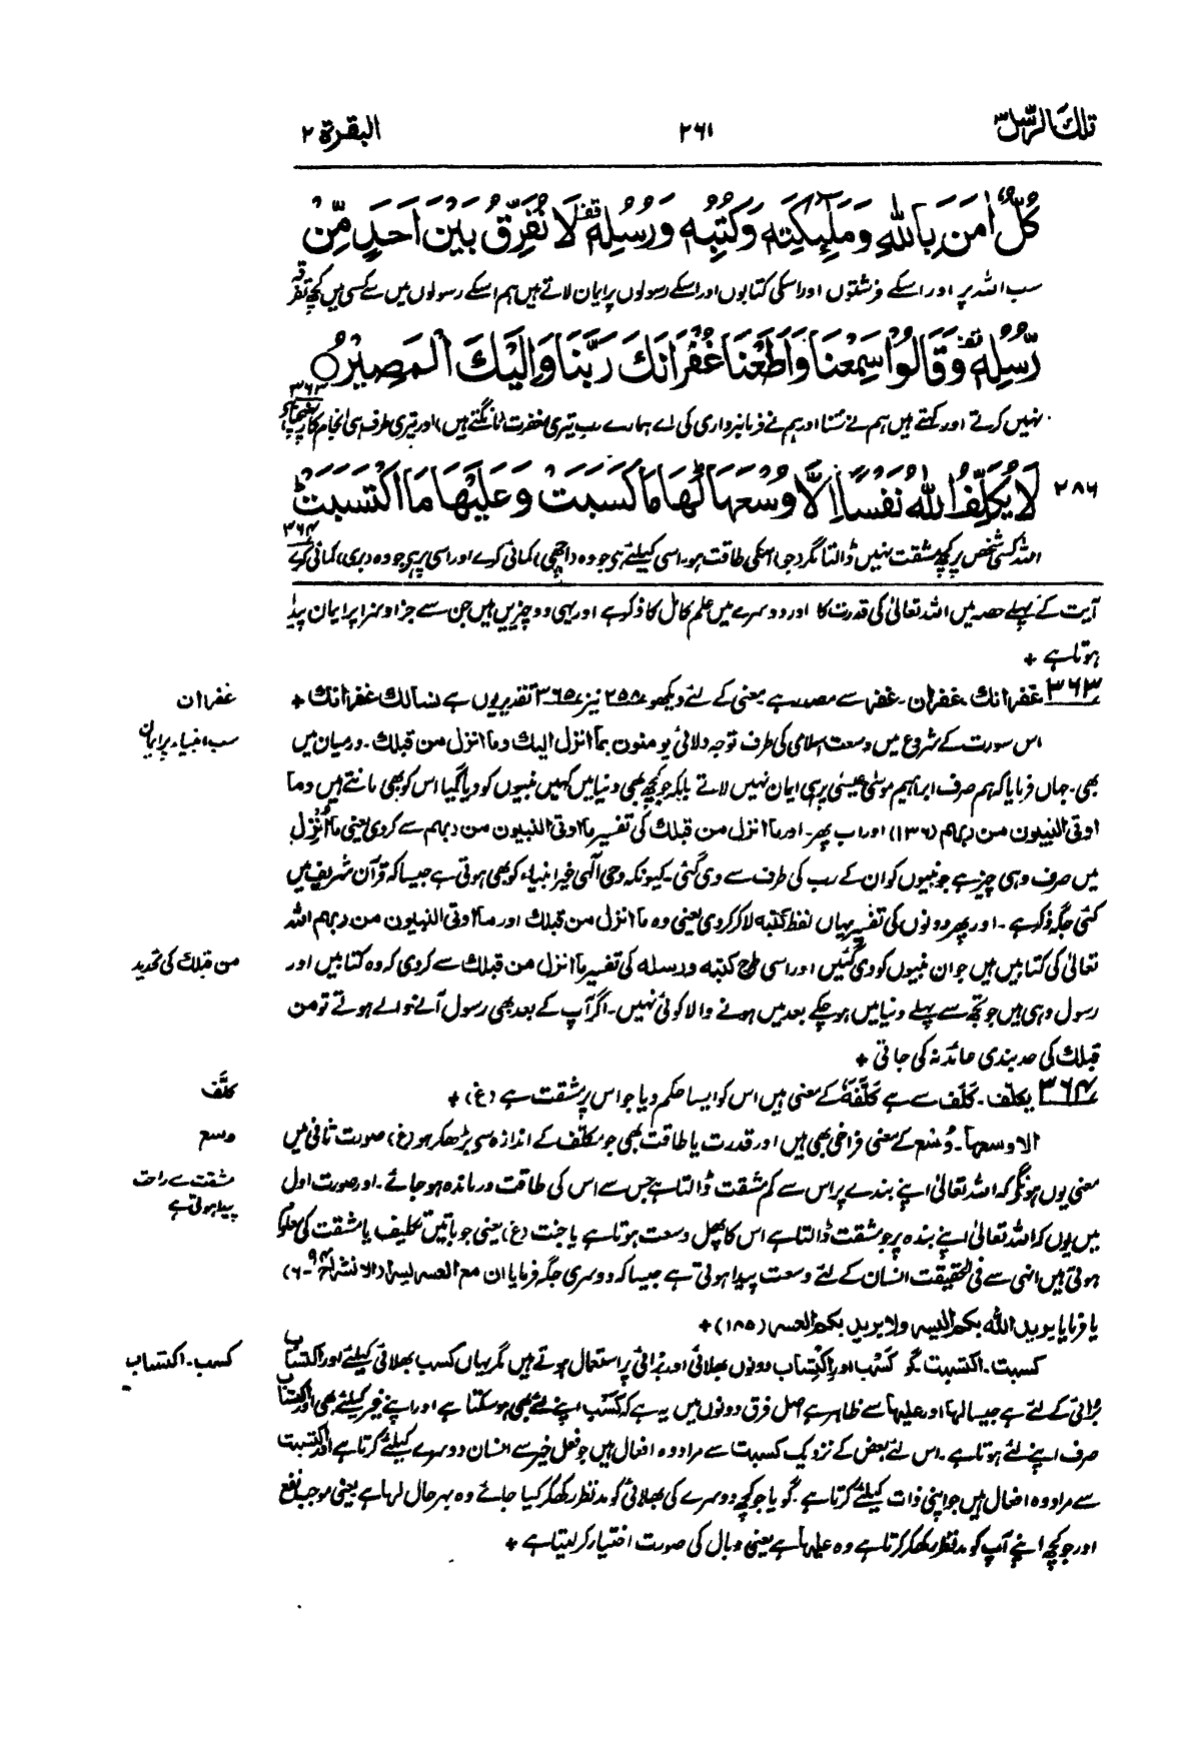 تلك الرسل ۳ ۲۶۱ البقرة ۲
كُلٌّ اٰمَنَ بِاللّٰهِ وَمَلٰٓئِكَتِهٖ وَكُتُبِهٖ وَرُسُلِهٖ قف لَا نُفَرِّقُ بَيْنَ اَحَدٍ مِّنْ
سب اللہ پر اور اسکے فرشتوں اور اسکی کتابوں اور اسکے رسولوں پر ایمان لاتے ہیں ہم اسکے رسولوں میں سے کسی میں کچھ تفرقہ
رُّسُلِهٖ قف وَقَالُوْا سَمِعْنَا وَاَطَعْنَا غُفْرَانَكَ رَبَّنَا وَاِلَيْكَ الْمَصِيْرُ ○
نہیں کرتے اور کہتے ہیں ہم نے سُنا اور ہم نے فرمانبرداری کی اے ہمارے رب تیری مغفرت (مانگتے ہیں) اور تیری طرف ہی انجام کار پہنچنا ہے ۳۶۳
۲۸۶ لَا يُكَلِّفُ اللّٰهُ نَفْسًا اِلَّا وُسْعَهَا ؕ لَهَا مَا كَسَبَتْ وَعَلَيْهَا مَا اكْتَسَبَتْ ؕ
اللہ کسی شخص پر کچھ مشقت نہیں ڈالتا مگر (جو) اسکی طاقت ہو۔ اسی کیلئے ہی جو وہ (اچھی) کمائی کرے اور اسی پر ہی جو وہ (بری) کمائی کرے ۳۶۴
آیت کے پہلے حصہ میں اللہ تعالیٰ کی قدرت کا اور دوسرے میں علم کامل کا ذکر ہے اور یہی دو چیزیں ہیں جن سے جزا و سزا پر ایمان پیدا
ہوتا ہے +
۳۶۳ غفرانك۔ غفران۔ غفر سے مصدر ہے معنی کے لئے دیکھو ۲۵۸ نیز ۳۶۵ تقدیر یوں ہے نسألك غفرانك +
غفران
اس سورت کے شروع میں وسعت اسلامی کی طرف توجہ دلائی یومنون بما انزل الیك وما انزل من قبلك۔ درمیان میں
سب انبیاء پر ایمان
بھی۔ جہاں فرمایا کہ ہم صرف ابراہیم موسیٰ عیسیٰ پر ہی ایمان نہیں لاتے بلکہ جو کچھ بھی دنیا میں کہیں نبیوں کو دیا گیا اس کو بھی مانتے ہیں وما
اوتی النبیون من ربهم (۱۳۶) اور اب پھر۔ اور ما انزل من قبلك کی تفسیر ما اوتی النبیون من ربهم سے کردی یعنی ما اُنزِل
میں صرف وہی چیز ہے جو نبیوں کو ان کے رب کی طرف سے دی گئی۔ کیونکہ وحی آلٰہی غیر انبیاء کو بھی ہوتی ہے جیسا کہ قرآن شریف میں
کئی جگہ ذکر ہے۔ اور پھر دونوں کی تفسیر یہاں لفظ كتبه لا کر کردی یعنی وہ ما انزل من قبلك اور ما اوتی النبیون من ربهم اللہ
تعالیٰ کی کتابیں ہیں جو ان نبیوں کو دی گئیں اور اسی طرح كتبه ورسله کی تفسیر ما انزل من قبلك سے کردی کہ وہ کتابیں اور
من قبلك کی تحدید
رسول وہی ہیں جو تجھ سے پہلے دنیا میں ہوچکے بعد میں ہونے والا کوئی نہیں۔ اگر آپ کے بعد بھی رسول آنے والے ہوتے تو من
قبلك کی حد بندی عائد نہ کی جاتی +
۳۶۴ یکلف۔ کَلَّف سے ہے كَلَّفَهٗ کے معنی ہیں اس کو ایسا حکم دیا جو اس پر مشقت ہے (غ) +
کلَّف
الا وسعها۔ وُسْع کے معنی فراخی بھی ہیں اور قدرت یا طاقت بھی جو مکلّف کے اندازہ سے بڑھکر ہو (غ) صورت ثانی میں
وسع
معنی یوں ہونگے کہ اللہ تعالیٰ اپنے بندے پر اس سے کم مشقت ڈالتا ہے جس سے اس کی طاقت درماندہ ہوجائے۔ اور صورت اول
مشقت سے راحت
پیدا ہوتی ہے
میں یوں کہ اللہ تعالیٰ اپنے بندہ پر جو مشقت ڈالتا ہے اس کا پھل وسعت ہوتا ہے یا جنت (غ) یعنی جو باتیں تکلیف یا مشقت کی معلوم
ہوتی ہیں انہی سے فی الحقیقت انسان کے لئے وسعت پیدا ہوتی ہے جیسا کہ دوسری جگہ فرمایا ان مع العسر یسرا (الانشراح ۹۴۔۶)
یا فرمایا یرید اللہ بکم الیسر ولا یرید بکم العسر (۱۸۵) +
کسبت۔ اکتسبت۔ گو کَسْب اور اِکْتِساب دونوں بھلائی اور بُرائی پر استعمال ہوتے ہیں مگر یہاں کسب بھلائی کیلئے اور اکتساب
کسب۔ اکتساب
بُرائی کے لئے ہے جیسا لها اور علیها سے ظاہر ہے اصل فرق دونوں میں یہ ہے کہ کَسْب اپنے لئے بھی ہوسکتا ہے اور اپنے غیر کیلئے بھی اور اکتساب
صرف اپنے لئے ہوتا ہے۔ اس لئے بعض کے نزدیک کسبت سے مراد وہ افعال ہیں جو فعل خیر سے انسان دوسرے کیلئے کرتا ہے اور اکتسبت
سے مراد وہ افعال ہیں جو اپنی ذات کیلئے کرتا ہے۔ گویا جو کچھ دوسرے کی بھلائی کو مدنظر رکھکر کیا جائے وہ بہرحال لہا ہے یعنی موجب نفع
اور جو کچھ اپنے آپ کو مدنظر رکھکر کرتا ہے وہ علیہا ہے یعنی وبال کی صورت اختیار کرلیتا ہے +